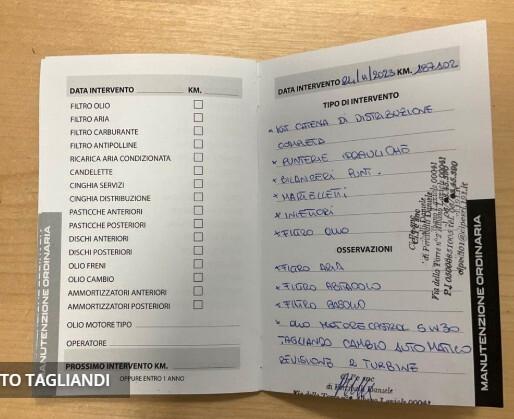 DATA INTERVENTO KM.
FILTRO OLIO
FILTRO ARIA
FILTRO CARBURANTE
FILTRO ANTIPOLLINE
RICARICA ARIA CONDIZIONATA
CANDELETTE
CINGHIA SERVIZI
CINGHIA DISTRIBUZIONE
PASTICCHE ANTERIORI
PASTICCHE POSTERIORI
DISCHI ANTERIORI
DISCHI POSTERIORI
OLIO FRENI
OLIO CAMBIO
AMMORTIZZATORI ANTERIORI
AMMORTIZZATORI POSTERIORI
OLIO MOTORE TIPO
OPERATORE
PROSSIMO INTERVENTO KM.
OPPURE ENTRO 1 ANNO
MANUTENZIONE ORDINARIA
TO TAGLIANDI
DATA INTERVENTO 24/11/2023 KM. 187102
TIPO DI INTERVENTO
* KIT CATENA DI DISTRIBUZIONE
COMPLETA
* PUNTERIE IDRAULICHE
* BILANCERI PUNT.
* MARTELLETTI
* INIETTORI
* FILTRO OLIO
OSSERVAZIONI
* FILTRO ARIA
* FILTRO ABITACOLO
* FILTRO GASOLIO
* OLIO MOTORE CASTROL 5W30
TAGLIANDO CAMBIO AUTOMATICO
REVISIONE 2 TURBINE
Via della Torre
00041
MANUTENZIONE ORDINARIA